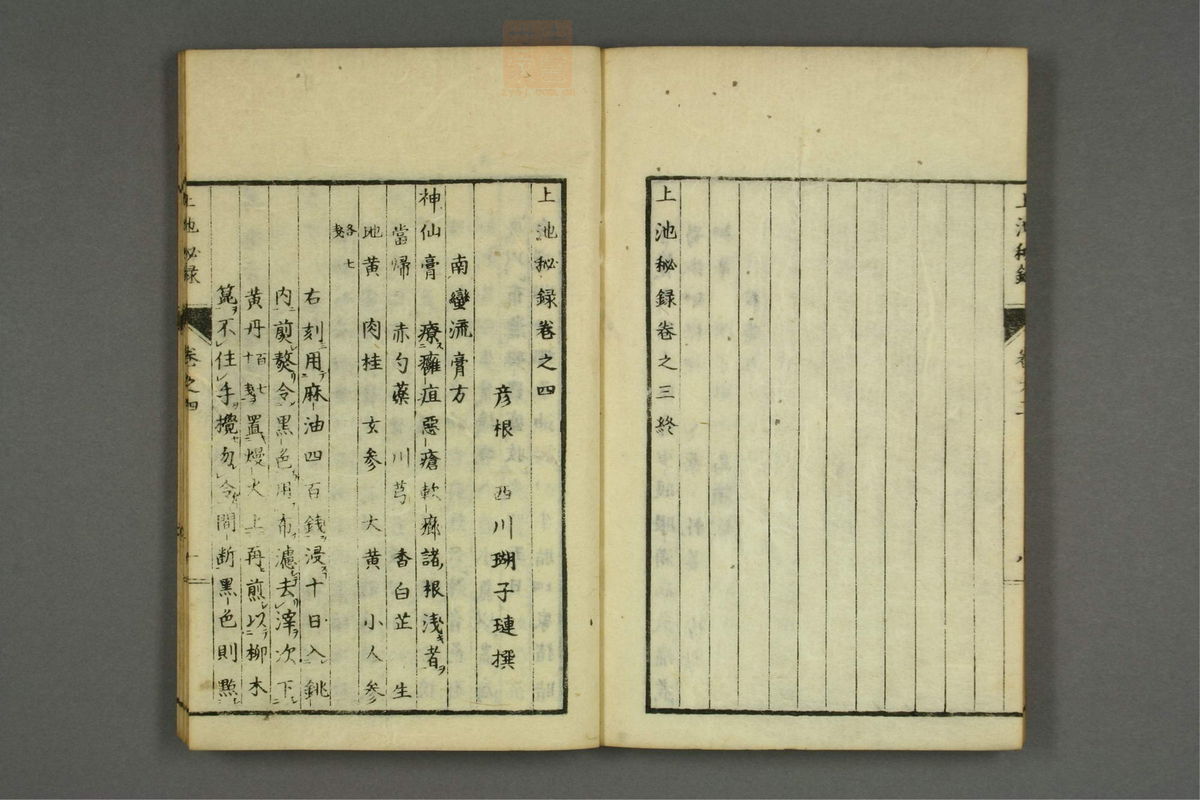 上池秘録卷之三終
上池秘録卷之四
彦根 西川瑚子璉撰
南蠻流膏方
神仙膏 療癰疽惡瘡軟癤諸根淺者
當歸 赤勺藥 川芎 香白芷 生
地黄 肉桂 玄參 大黄 小人參
各七
右刻用麻油四百錢浸十日入銚
内煎熬令黒色用布濾去滓次下
黄丹百七十錢置熳火上再煎以柳木
箆不住手攪勿令間斷黒色則㸃
上池秘録
卷之四